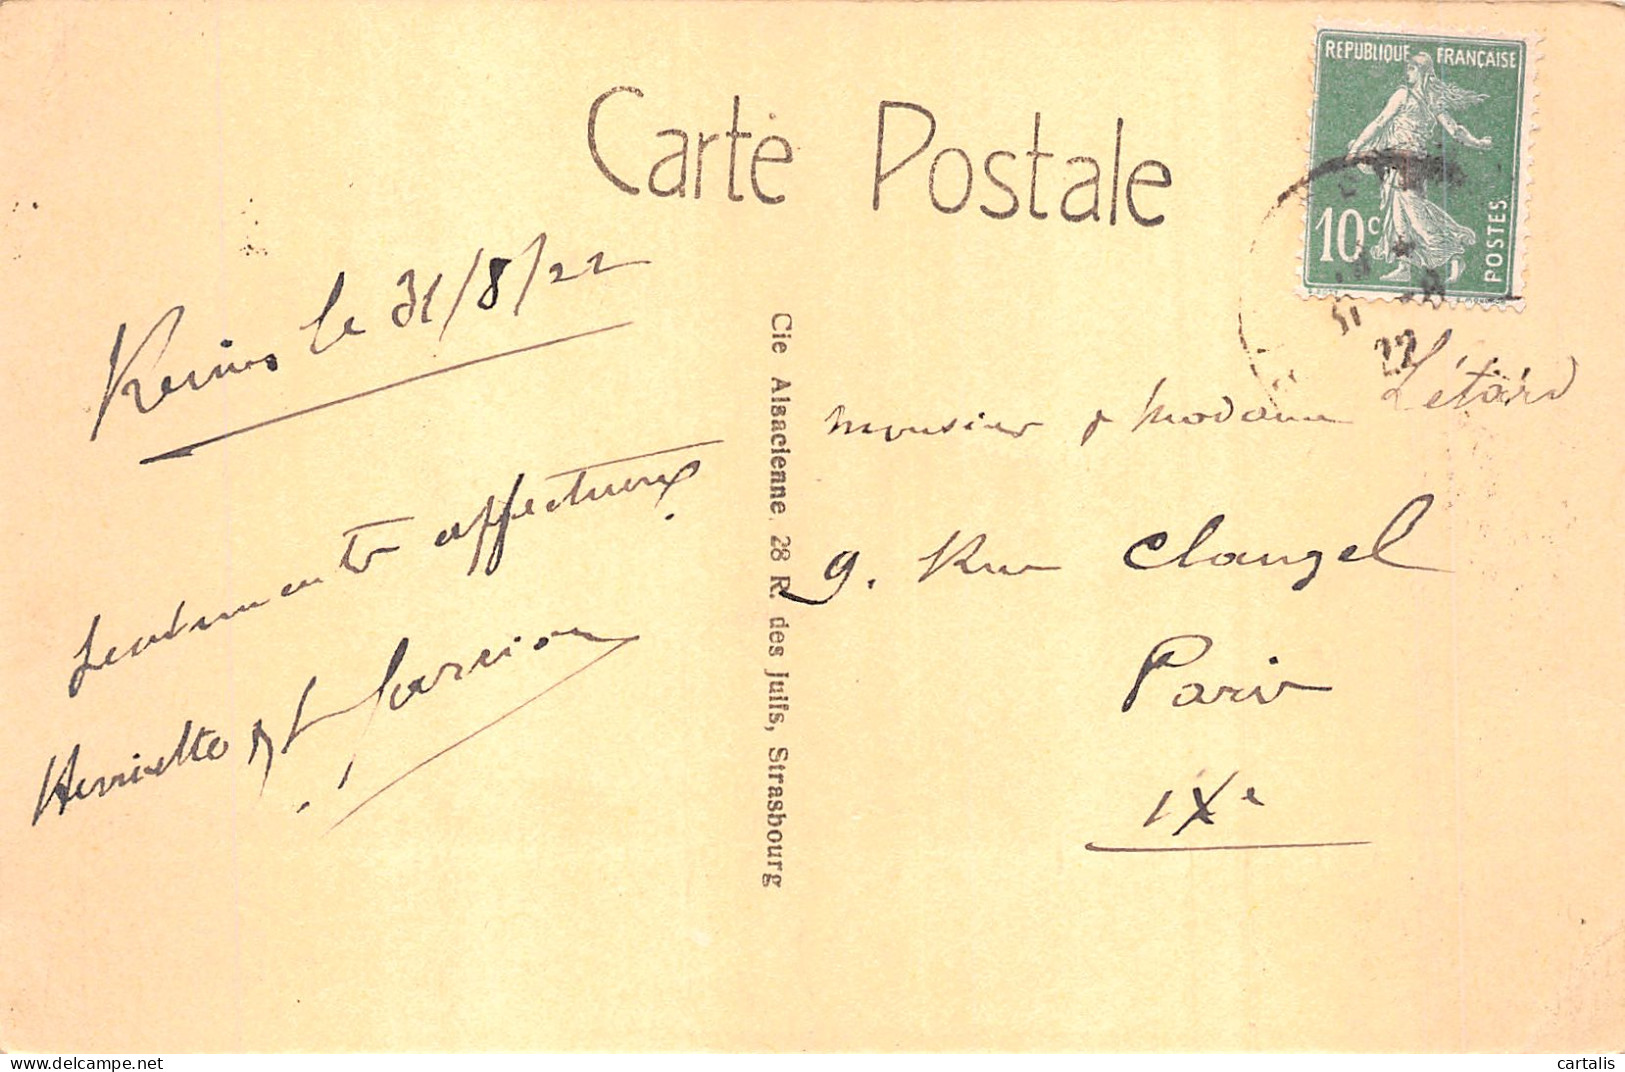 Carte Postale
REPUBLIQUE FRANÇAISE
10c
POSTES
22
Reims le 31/8/22
Sentiments affectueux
Henriette & L
Cie Alsacienne, 28 R. des Juifs, Strasbourg
Monsieur & Madame Létard
9. Rue Clauzel
Paris
IXe
cartalis